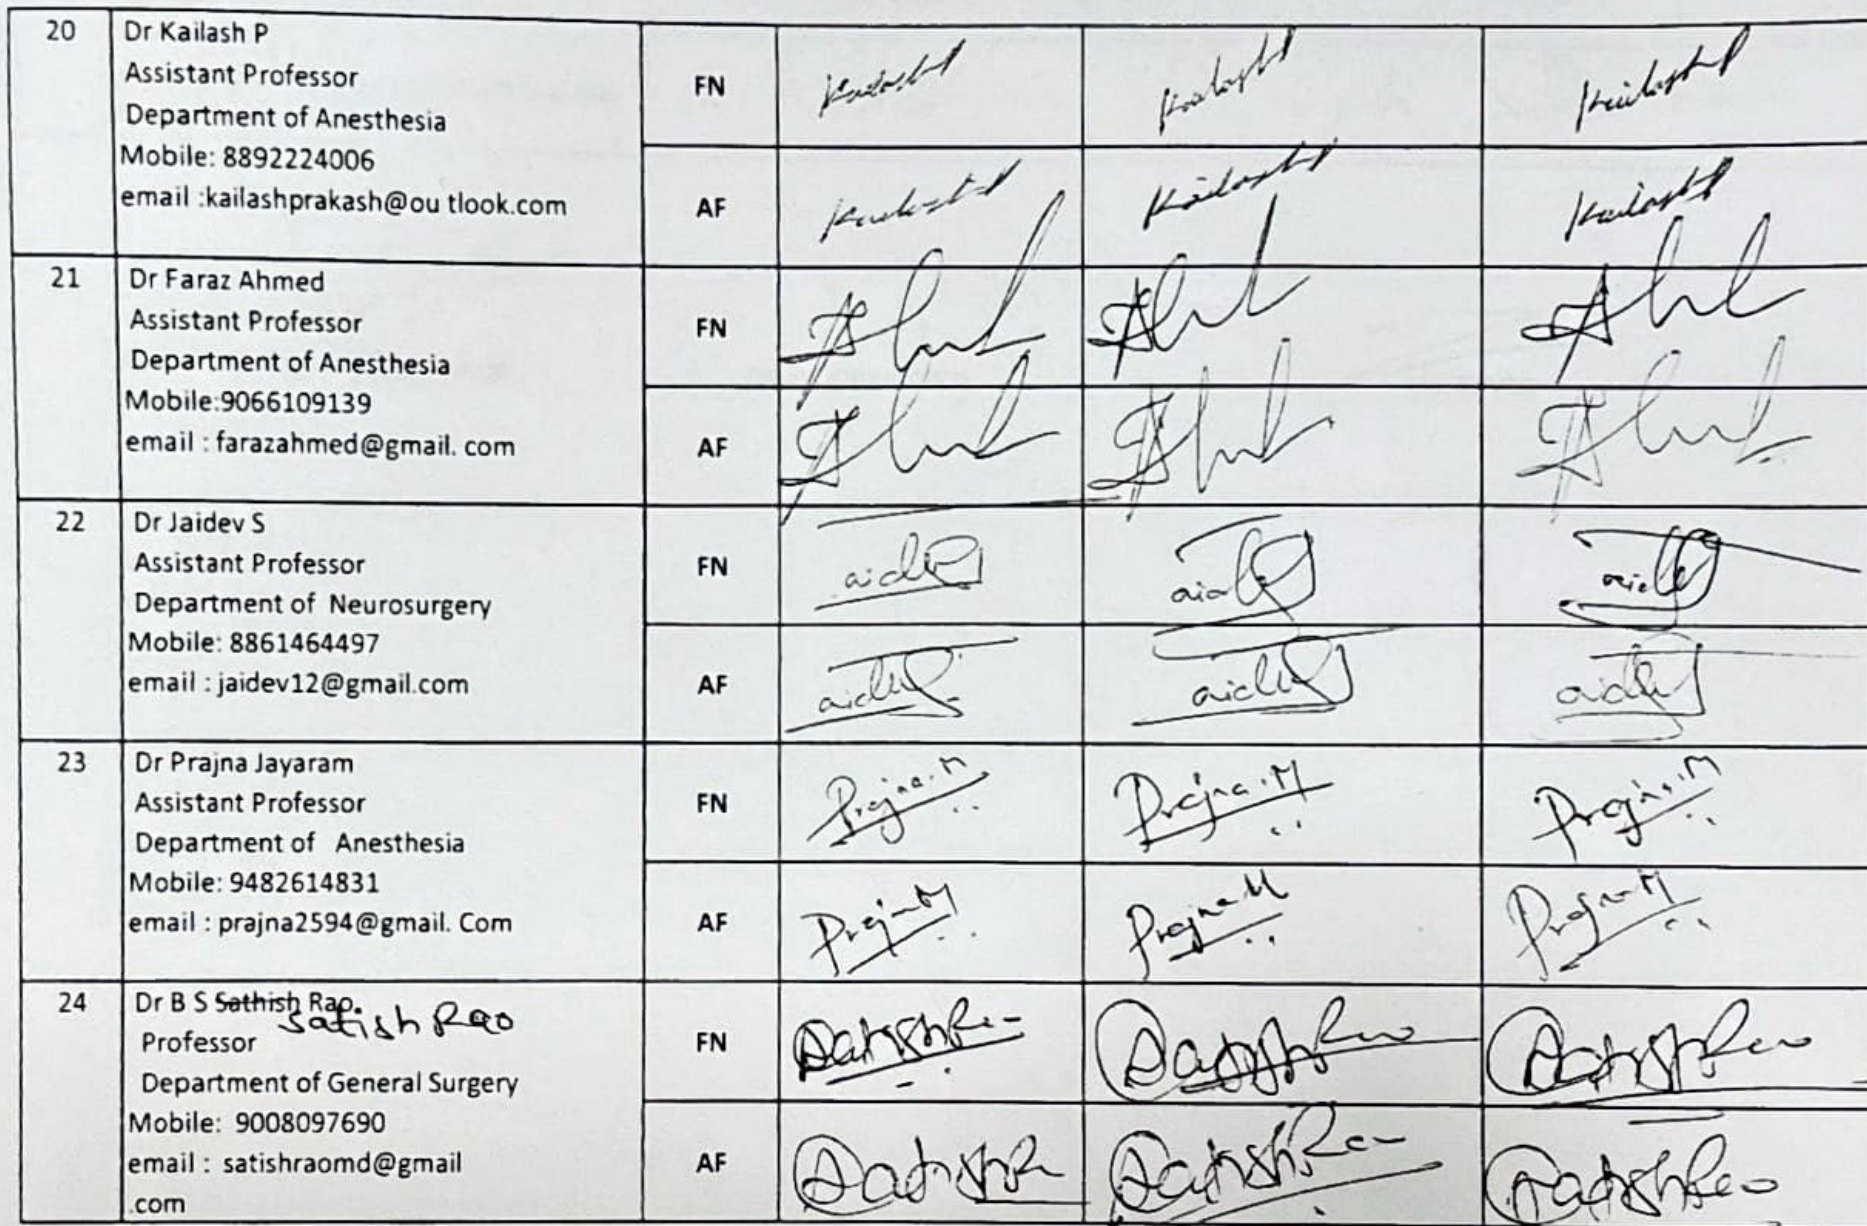 20
Dr Kailash P
Assistant Professor
Department of Anesthesia
Mobile: 8892224006
email :kailashprakash@ou tlook.com
FN
KailashP KailashP KailashP
AF
KailashP KailashP KailashP
21
Dr Faraz Ahmed
Assistant Professor
Department of Anesthesia
Mobile:9066109139
email : farazahmed@gmail. com
FN
AF
22
Dr Jaidev S
Assistant Professor
Department of Neurosurgery
Mobile: 8861464497
email : jaidev12@gmail.com
FN
AF
23
Dr Prajna Jayaram
Assistant Professor
Department of Anesthesia
Mobile: 9482614831
email : prajna2594@gmail. Com
FN
Prajna.M Prajna.M Prajna.M
AF
PrajnaM PrajnaM PrajnaM
24
Dr B S Sathish Rao.
Satish Rao
Professor
Department of General Surgery
Mobile: 9008097690
email : satishraomd@gmail
.com
FN
SatishRao SatishRao SatishRao
AF
SatishR SatishRao SatishRao